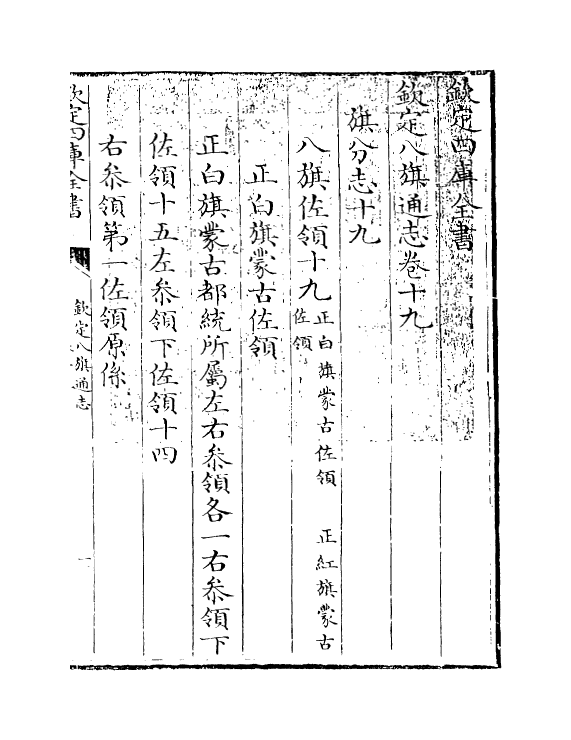 欽定四庫全書
欽定八旗通志卷十九
旗分志十九
八旗佐領十九正白旗蒙古佐領 正紅旗蒙古
佐領
正白旗蒙古佐領
正白旗蒙古都統所屬左右叅領各一右叅領下
佐領十五左叅領下佐領十四
右叅領第一佐領原係
欽定四庫全書
欽定八旗通志
一